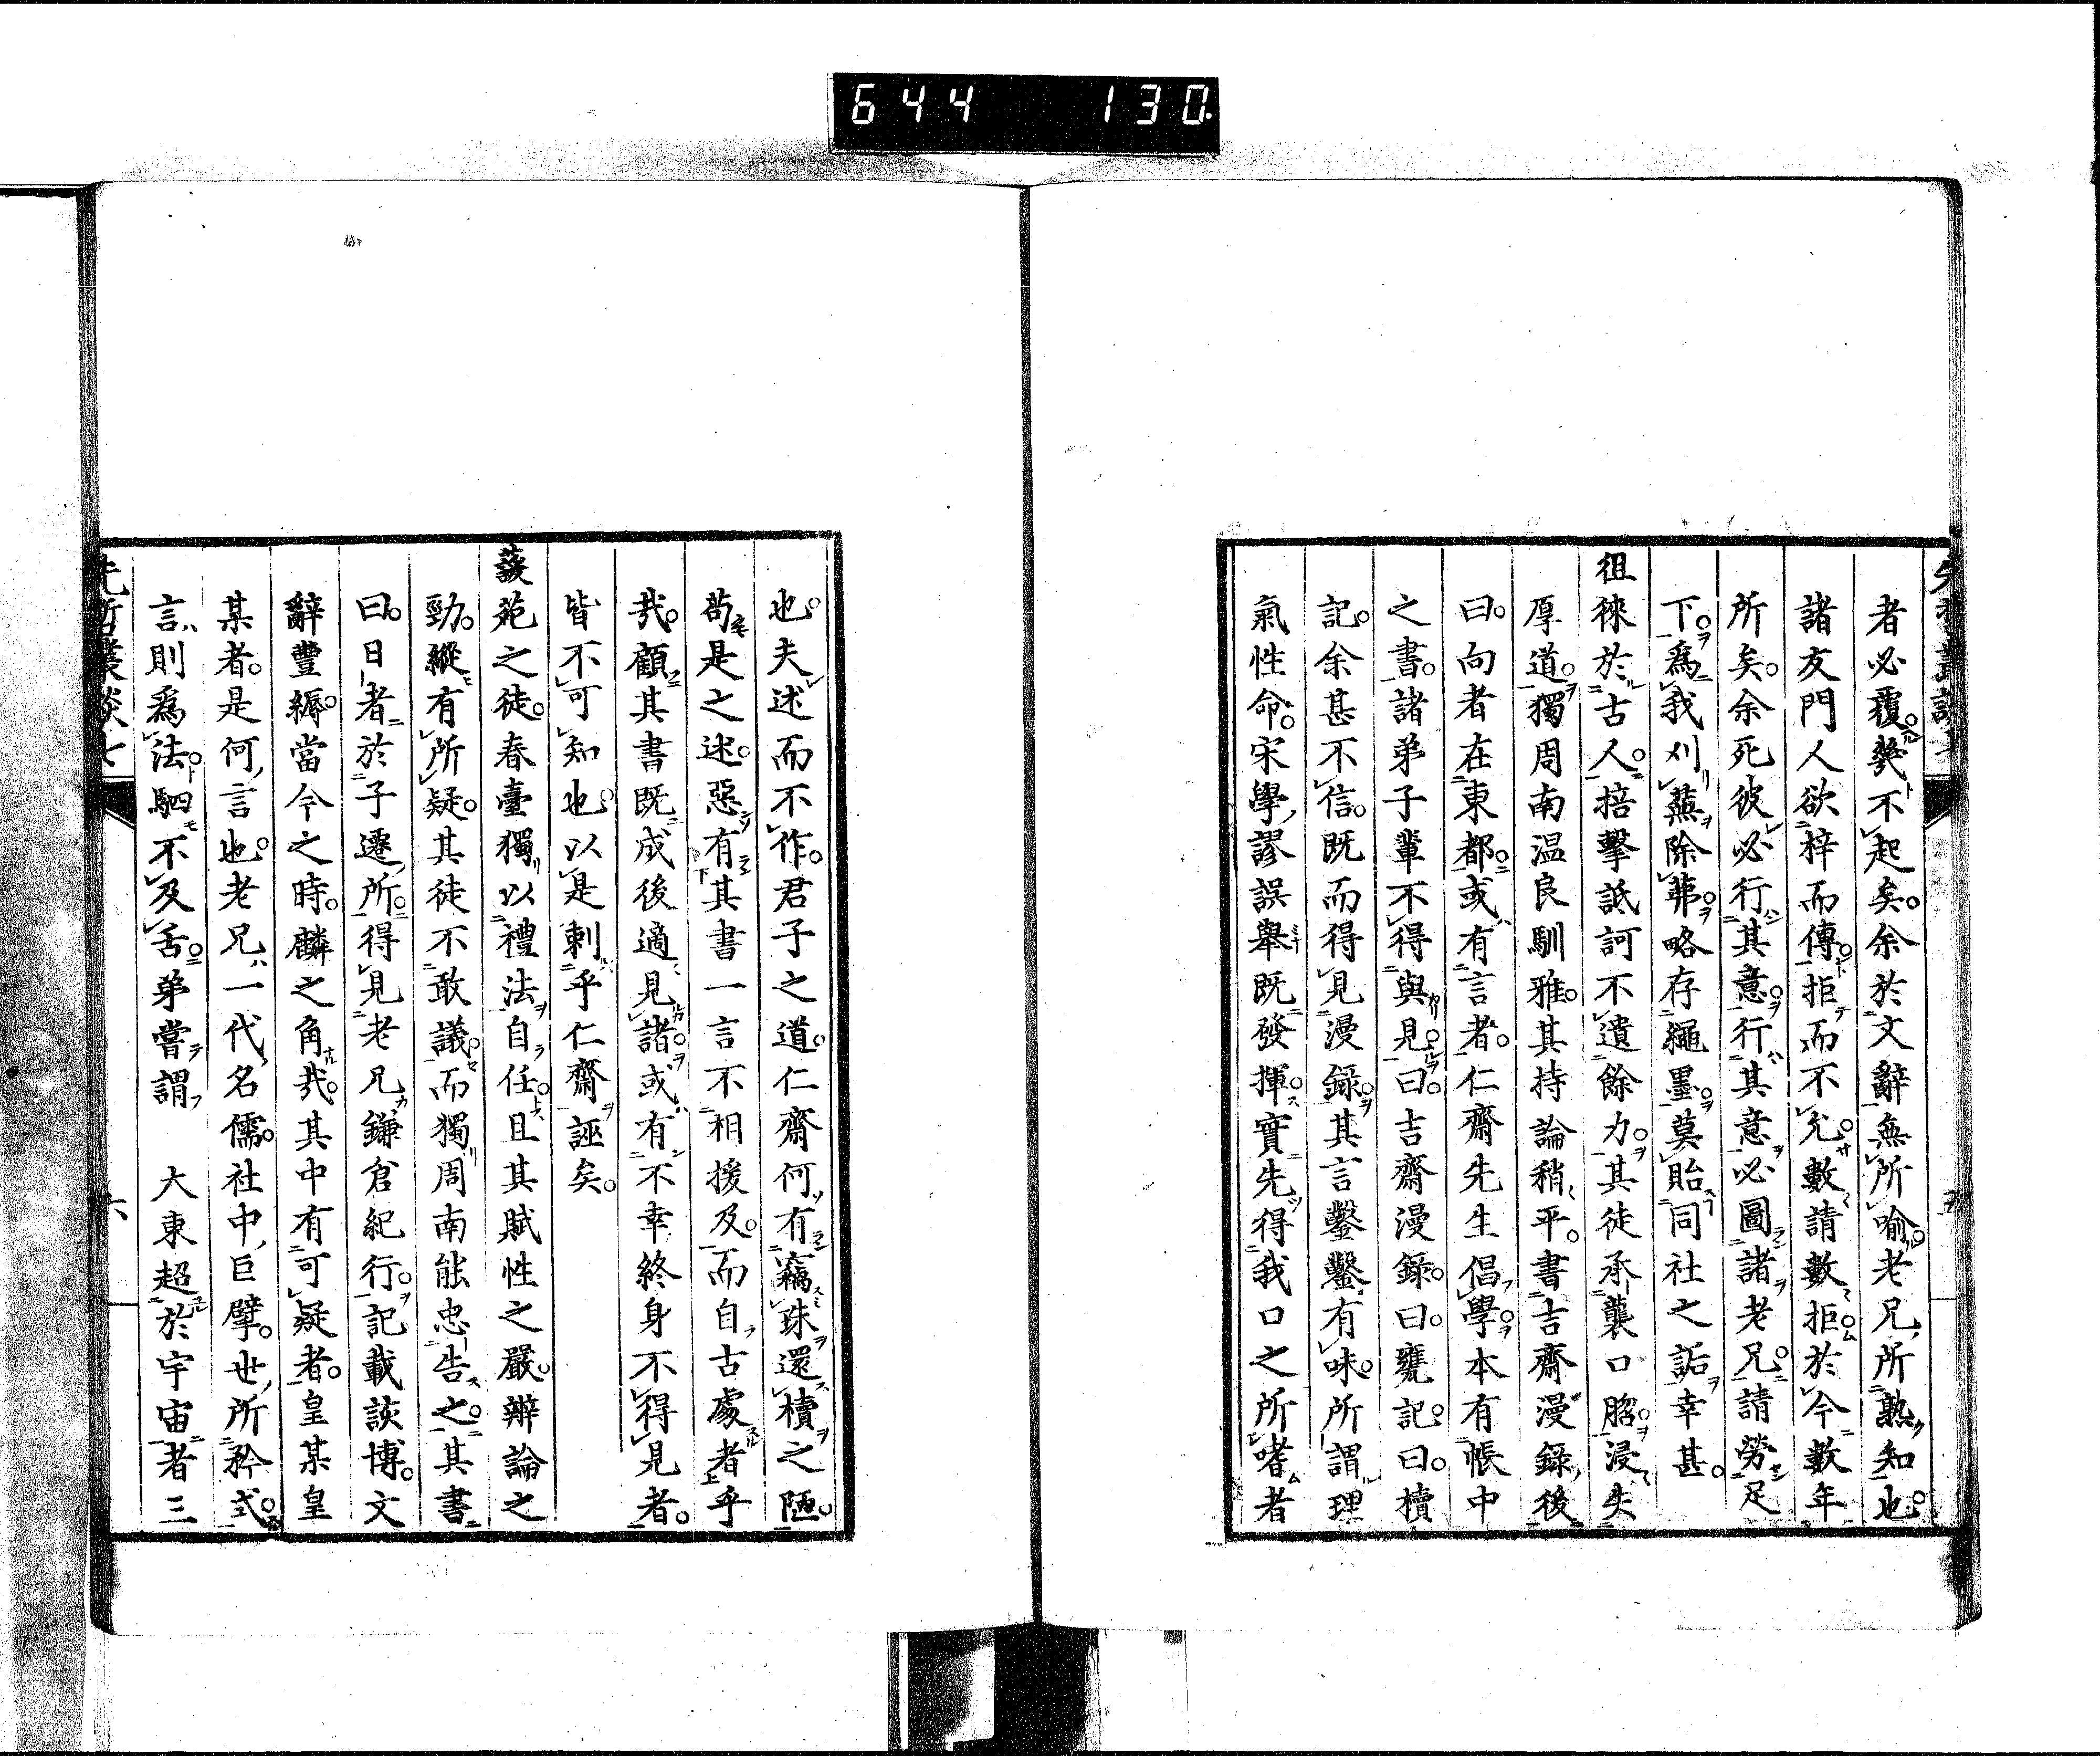 644 130
者必覆甕不起矣。余於文辭無所喻。老兄所熟知也。
諸友門人欲梓而傳。拒而不允。數請數拒。於今數年
所矣。余死彼必行其意。行其意必圖諸老兄。請勞足
下。爲我刈蕪除茀。略存繩墨。莫貽同社之詬。幸甚。
徂徠於古人。掊擊詆訶不遺餘力。其徒承襲口吻。浸失
厚道。獨周南温良馴雅。其持論稍平。書吉齋漫錄後
曰。向者在東都。或有言者。仁齋先生倡學。本有帳中
之書。諸弟子輩不得與見。曰吉齋漫錄。曰甕記。曰櫝
記。余甚不信。既而得見漫錄。其言鑿鑿有味。所謂理
氣性命。宋學謬誤。舉既發揮。實先得我口之所嗜者
也。夫述而不作。君子之道。仁齋何有竊珠還櫝之陋。
苟是之述。惡有其書一言不相援及。而自古處者乎
哉。顧其書既成後適見諸。或有不幸終身不得見者。
皆不可知也。以是刺乎仁齋誣矣。
蘐苑之徒。春臺獨以禮法自任。且其賦性之嚴。辨論之
勁。縱有所疑。其徒不敢議。而獨周南能忠告之。其書
曰。日者於子遷所。得見老兄鎌倉紀行。記載該博。文
辭豐縟。當今之時。麟之角哉。其中有可疑者。皇某皇
某者。是何言也。老兄一代名儒。社中巨擘。世所矜式。
言則爲法。駟不及舌。弟嘗謂 大東超於宇宙者三
先哲叢談七
六